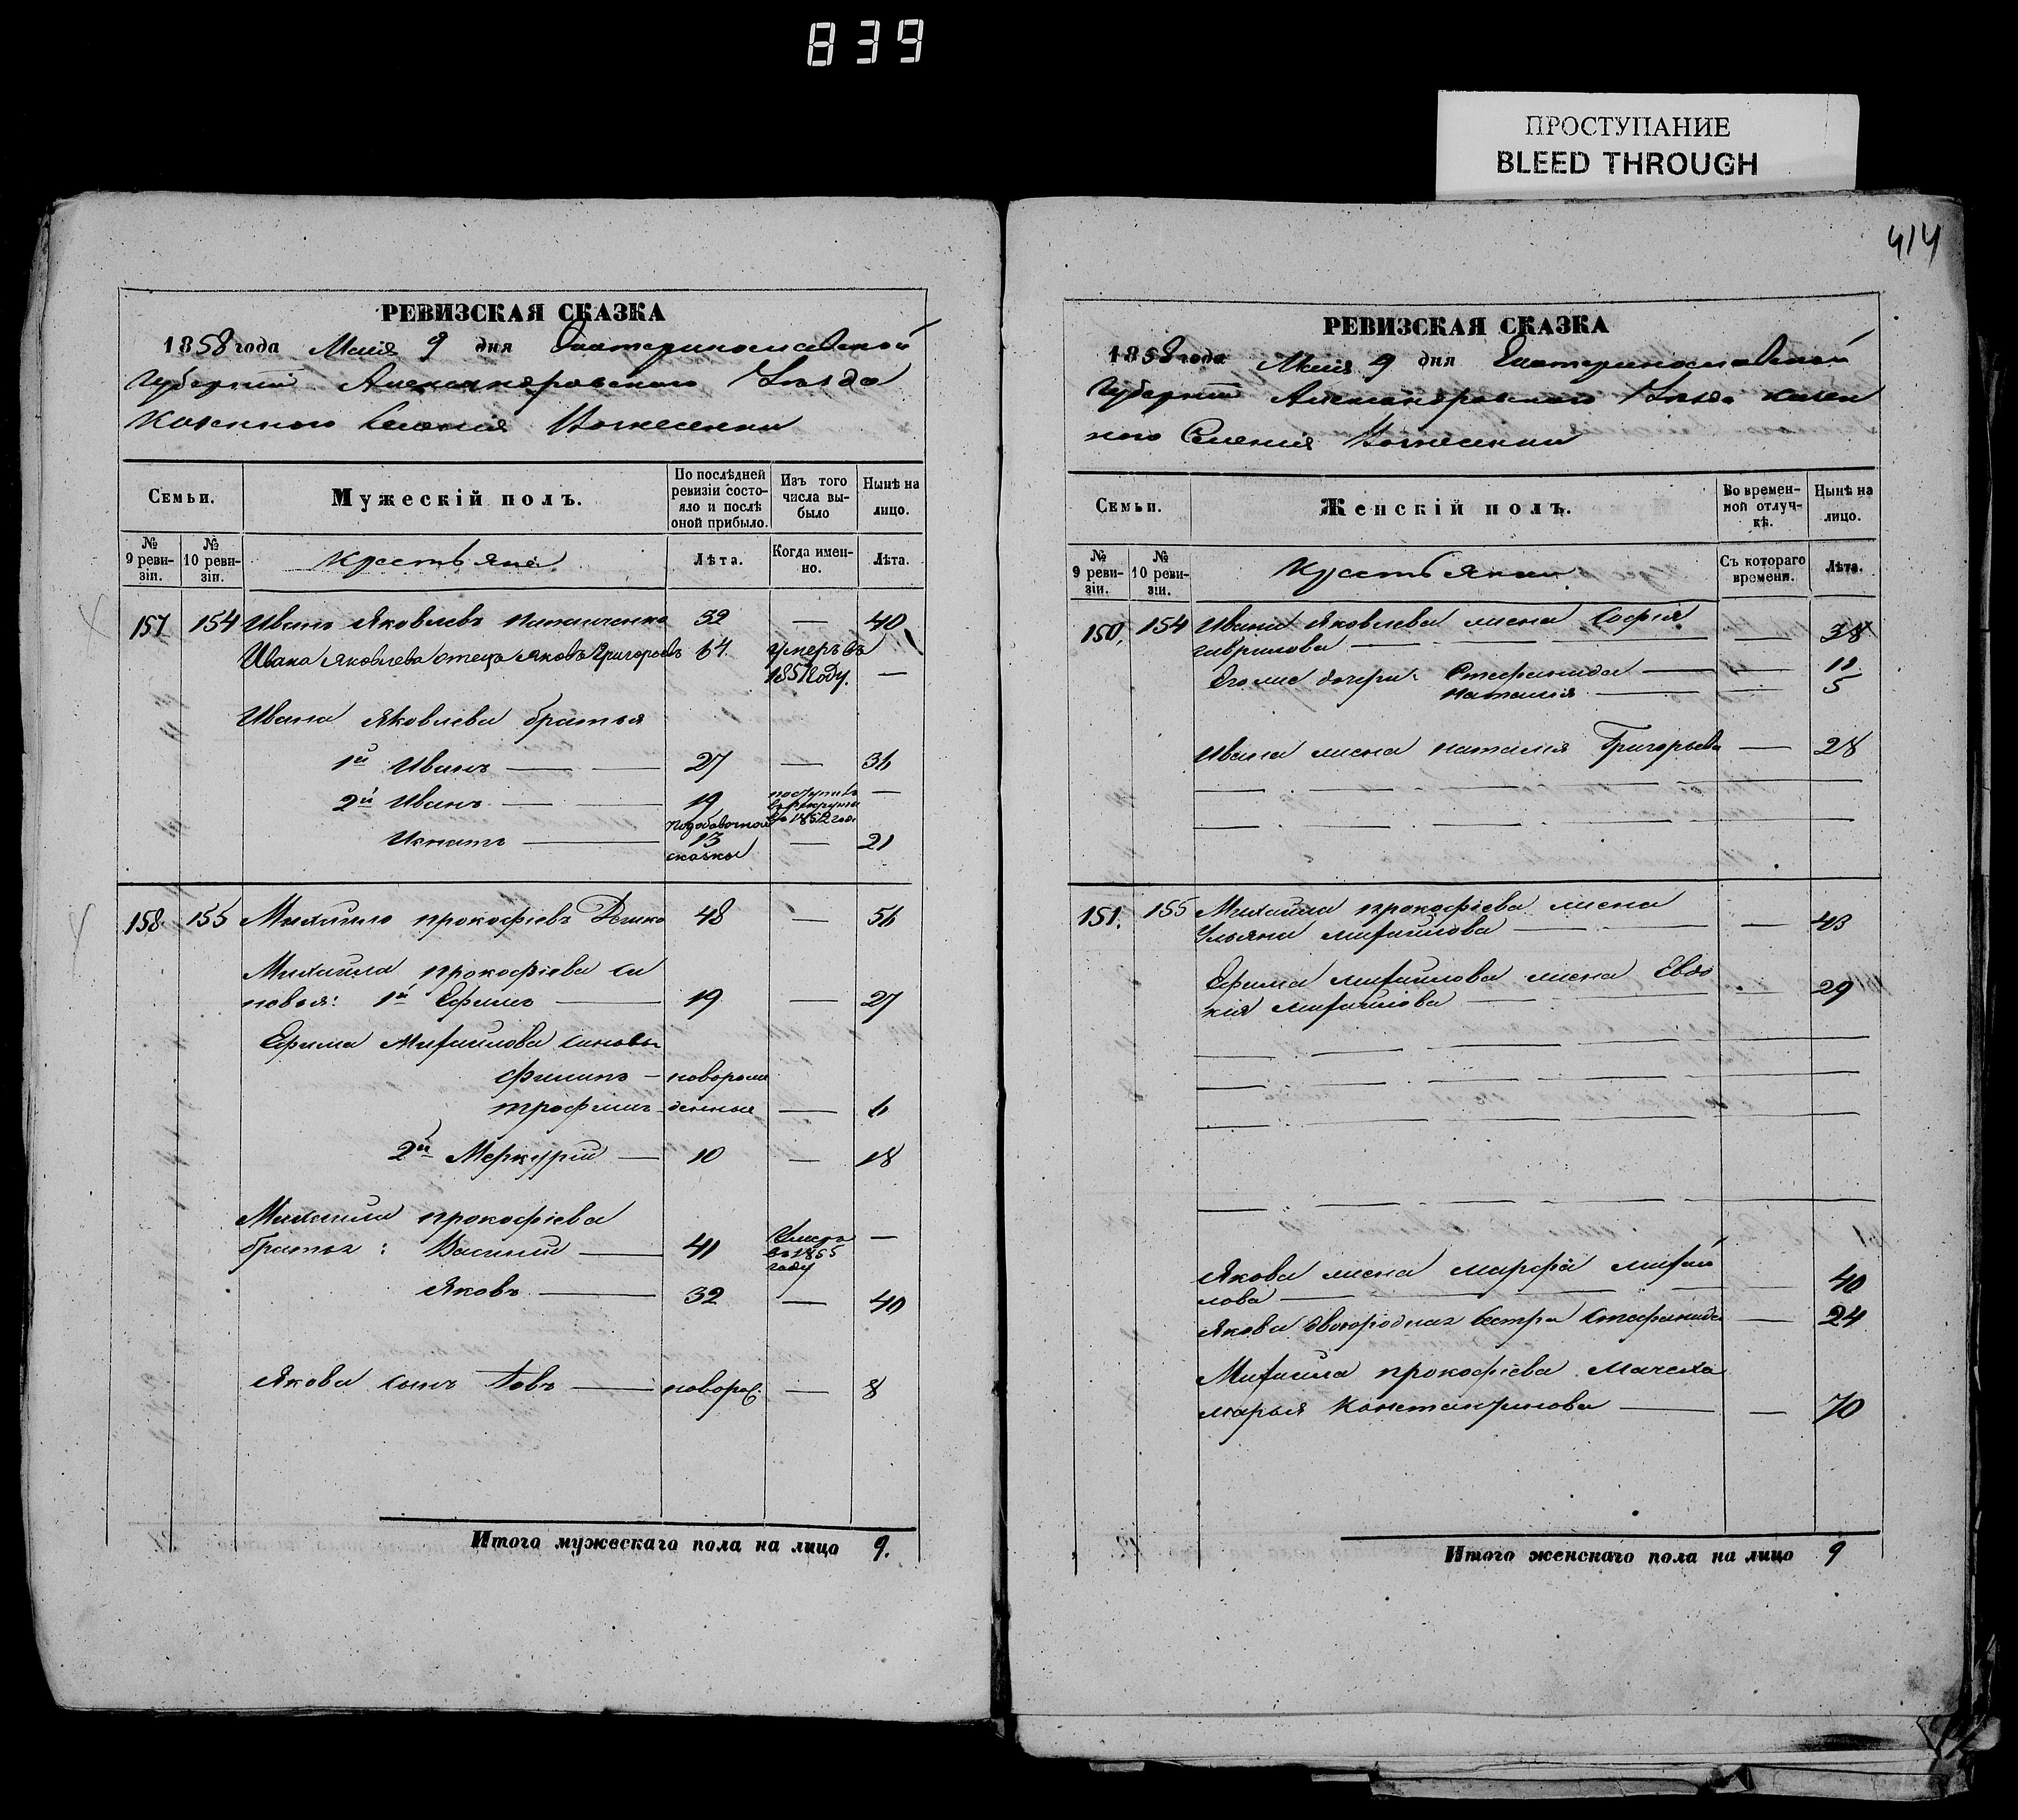 839
ПРОСТУПАНИЕ
BLEED THROUGH
414
РЕВИЗСКАЯ СКАЗКА
1858 года Маія 9 дня Екатеринославской
Губерніи Александровского Уѣзда
Казенного Селенія Вознесенки
Семьи.
Мужескій полъ.
По послѣдней ревизіи состояло и послѣ оной прибыло.
Изъ того числа выбыло
Нынѣ на лицо.
№ 9 ревизіи.
№ 10 ревизіи.
Крестьяне
Лѣта.
Когда именно.
Лѣта.
157 154 Иванъ Яковлевъ 32 — 40
Ивана Яковлева отецъ Яковъ Григорьевъ 64 умеръ въ
185 году. —
Ивана Яковлева братья
1й Иванъ — — 27 — 36
2й Иванъ — — 19 поступилъ въ рекруты въ 1852 год. —
Игнатъ — по добавочной 13 сказкы — 21
158 155 Михайло Прокофіевъ 48 — 56
Михайла Прокофіева сы
новья: 1й Ефимъ — 19 — 27
Ефима Михайлова сыновья
Филипъ — новорож
Трофимъ — денные — 6
2й Меркурій — 10 — 18
Михайла Прокофіева
братья: Василій — 41 Умеръ въ 1855 году —
Яковъ — 32 — 40
Якова сынъ Іовъ — новорож. — 8
Итого мужескаго пола на лицо 9.
РЕВИЗСКАЯ СКАЗКА
1858 года Маія 9 дня Екатеринославской
Губерніи Александровского Уѣзда казен
ного Селенія Вознесенки
Семьи.
Женскій полъ.
Во временной отлучкѣ.
Нынѣ на лицо.
№ 9 ревизіи.
№ 10 ревизіи.
Крестьянки
Съ котораго времени.
Лѣта.
150, 154 Ивана Яковлева жена Софія
Гаврилова — — 38
Его же дочери: Стефанида — —
Наталія — — 5
Ивана жена Наталія Григорьева — 28
151. 155 Михайла Прокофіева жена
Ульяна Михайлова — — 43
Ефима Михайлова жена Евдо
кія Михайлова — — 29
Якова жена Марфа Михай
лова — — 40
Якова двоюродная сестра Стефанида — 24
Михайла Прокофіева мачеха
Марья Константинова — — 70
Итого женскаго пола на лицо 9